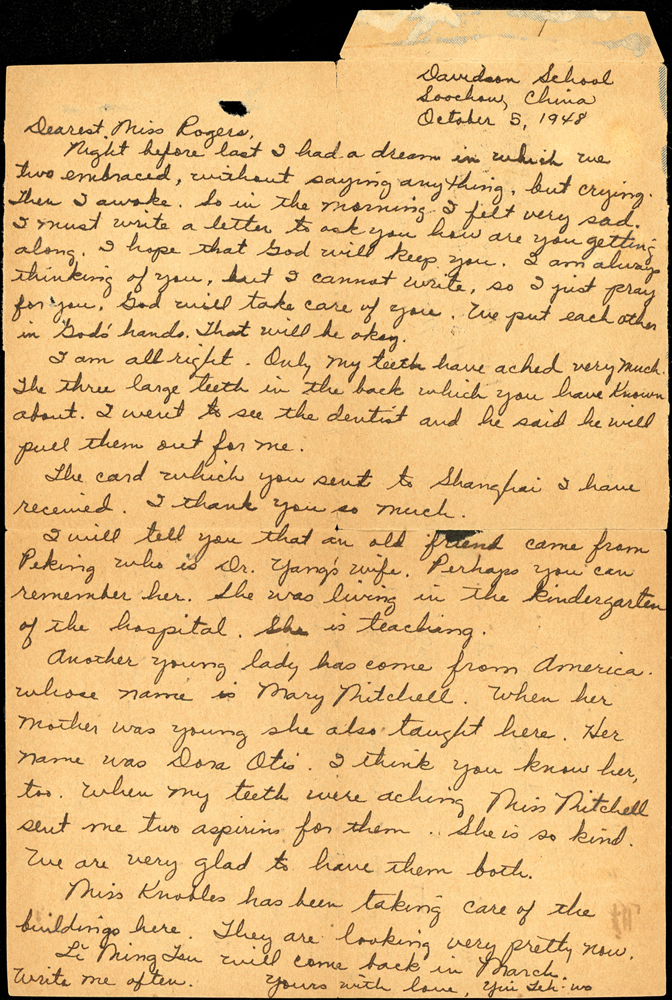 Davidson School
Soochow, China
October 5, 1948
Dearest Miss Rogers,
Night before last I had a dream in which we
two embraced, without saying anything, but crying.
Then I awoke. So in the morning I felt very sad.
I must write a letter to ask you how are you getting
along. I hope that God will keep you. I am always
thinking of you, but I cannot write, so I just pray
for you. God will take care of you. We put each other
in God's hands. That will be okay.
I am all right. Only my teeth have ached very much.
The three large teeth in the back which you have known
about. I went to see the dentist and he said he will
pull them out for me.
The card which you sent to Shanghai I have
received. I thank you so much.
I will tell you that an old friend came from
Peking who is Dr. Yang's wife. Perhaps you can
remember her. She was living in the kindergarten
of the hospital. She is teaching.
Another young lady has come from America.
whose name is Mary Mitchell. When her
mother was young she also taught here. Her
name was Dora Otis. I think you know her,
too. When my teeth were aching Miss Mitchell
sent me two aspirins for them. She is so kind.
We are very glad to have them both.
Miss Knobles has been taking care of the
buildings here. They are looking very pretty now.
Li Ming Tsu will come back in March.
Write me often. Yours with love, Yin Seh-wo